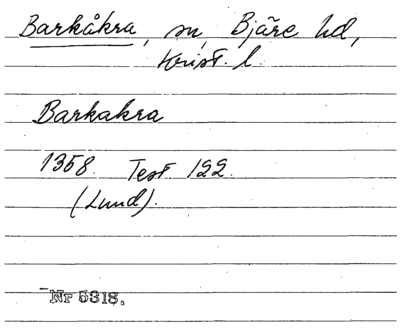 Barkåkra, sn, Bjäre hd,
Krist. l.
Barkakra
1358. Test. 122.
(Lund).
Nr 5318.